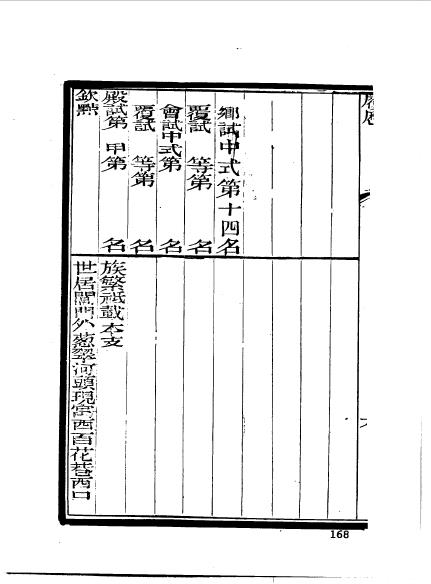 履歷
鄉試中式第十四名
覆試　等第　名
會試中式第　名
覆試　等第　名
殿試第　甲第　名
欽點
族繁祗載本支
世居閶門外葱翠河頭現寓西百花巷西口
168